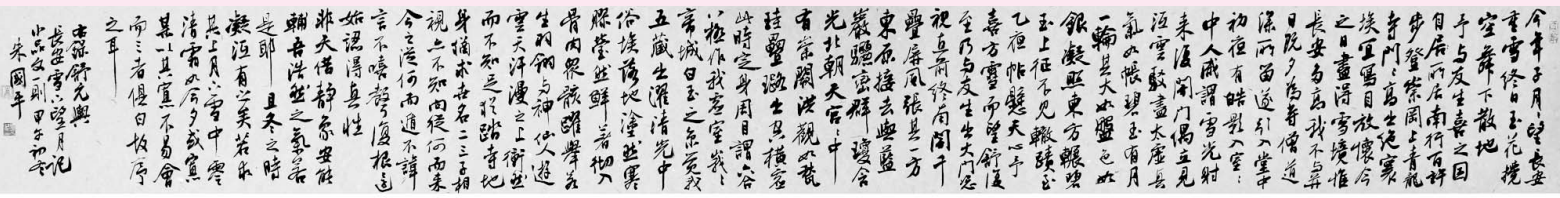 今年子月月望長安
重雪終日玉花攪
空舞下散地
予与友生喜之因
自所居南行百許
步登崇岡上青龍
寺門々高出絕寰
埃宜寫目放懷今
之日盡得雪境惟
長安多高我不與並
日既夕為寺僧道
深所留遂引入堂中
初夜有皓影入室々
中人咸謂雪光射
来復開門偶立見
冱雲駮盡太虛真
氣如帳碧玉有月
一輪其大如盤色如
銀凝照東方輾碧
玉上征不見轍蹟至
乙夜帖懸天心予
喜方雪而望舒復
至乃与友生出大門恣
視直前終南開千
疊屏風張其一方
東原接去與藍
巖驪巒群瓊含
光北朝天宮々中
有崇闕洪觀如甃
珪疊璐出空橫虛
此時定身周目謂六合
八極作我虛室峨々
帝城白玉之京覺我
五藏出濯清光中
俗埃落地塗然寒
膠瑩然鮮著徹入
骨肉眾骸躍舉若
生羽翎與神仙人遊
雲天汗漫之上衝然
而不知足猶踏寺地
身猶求世名二三子相
視亦不知向從何而来
今之從何而遁不諱
言不嘻聲復根還
始認得真性
非天借静象安能
輔吾浩然之氣若
是耶 且冬之時
凝冱有之矣若求
其上月下雪中零
清霜如今夕或寡
某以其寡不易會
而三者俱白故序
之耳
右錄舒元輿
長安雪下望月記
小品文一則 甲午初冬
朱國平